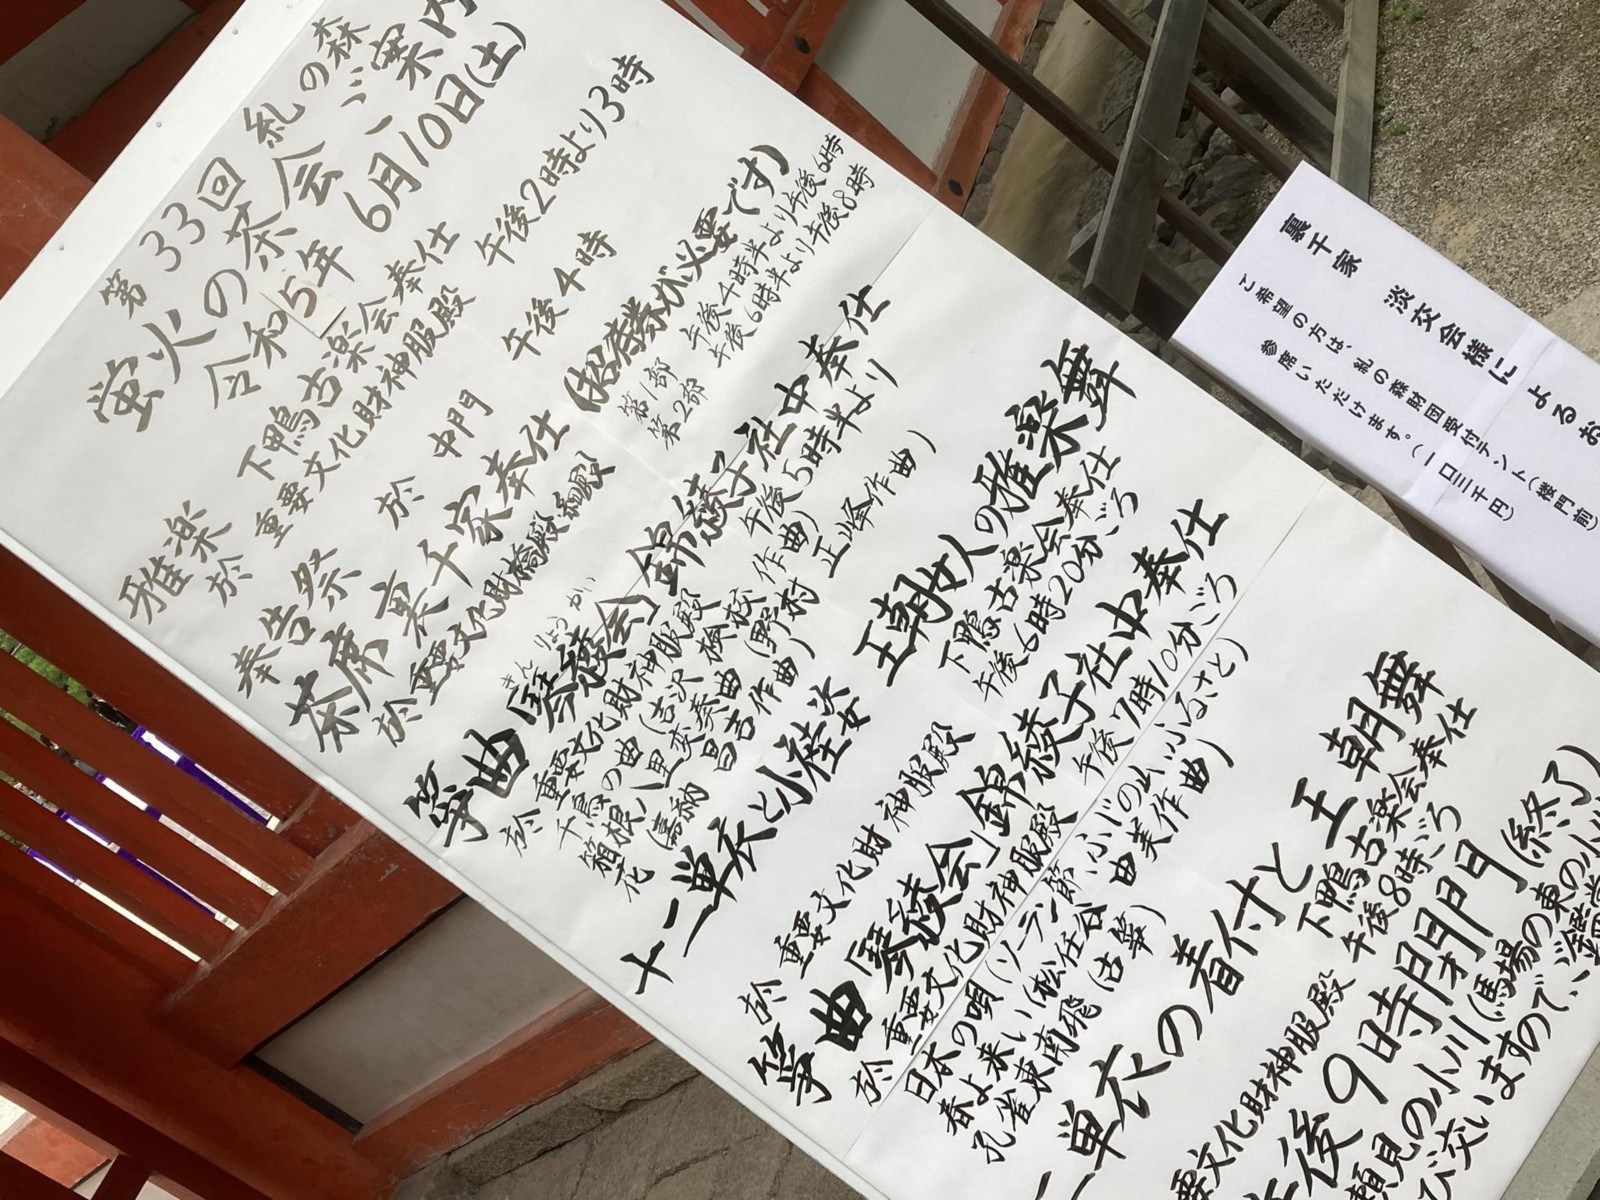 第33回 糺の森
蛍火の茶会ご案内
令和5年 6月10日(土)
雅楽 下鴨古楽会奉仕
於 重要文化財神服殿 午後2時より3時
奉告祭 於 中門 午後4時
茶席 裏千家奉仕 (招待券が必要です)
於 重要文化財橋殿・細殿
第1部 午後4時半より午後6時
第2部 午後6時半より午後8時
箏曲「琴綾会」錦綾子社中奉仕
きんりょうかい
於 重要文化財神服殿 午後5時半より
千鳥の曲(吉沢検校作曲)
箱根八里変奏曲(野村正峰作曲)
花(嘉納昌吉作曲)
十二単衣と小袿姿 王朝女人の雅楽舞
下鴨古楽会奉仕
於 重要文化財神服殿 午後6時20分ごろ
箏曲「琴綾会」錦綾子社中奉仕
於 重要文化財神服殿 午後7時10分ごろ
日本の唄(ソーラン節 ふじの山 ふるさと)
春よ来い(松任谷由美作曲)
孔雀東南飛(古箏)
二単衣の着付と王朝舞
下鴨古楽会奉仕
要文化財神服殿 午後8時ごろ
後9時閉門(終了)
瀬見の小川(馬場の東の小川
び交いますので、ご鑑賞
裏千家 淡交会様によるお
ご希望の方は、糺の森財団受付テント(楼門前)
参席いただけます。(一口三千円)